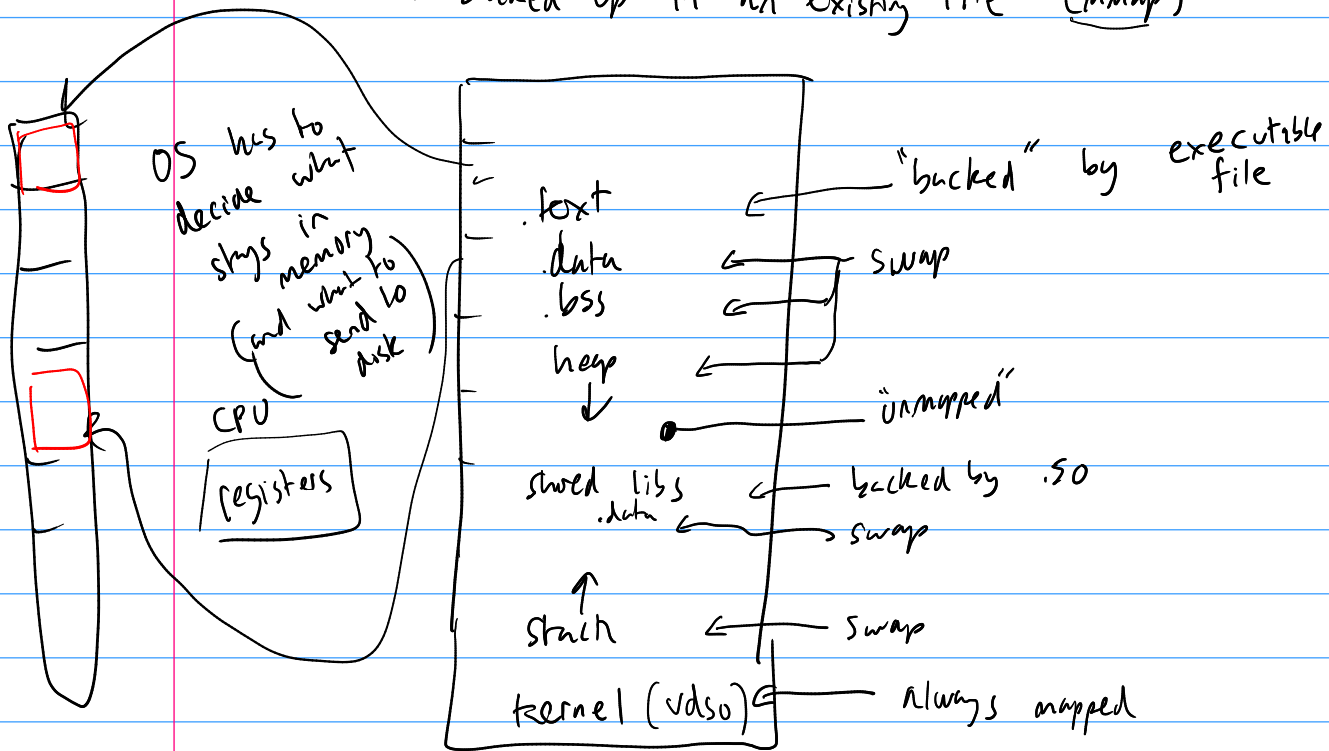 up existing file (mmap)
OS has to
decide what
stays in
memory
(and what to
send to
disk
CPU
registers
.text
.data
.bss
heap
shared libs
.data
stack
kernel (vdso)
"backed" by executable
file
swap
"unmapped"
backed by .so
swap
swap
Always mapped